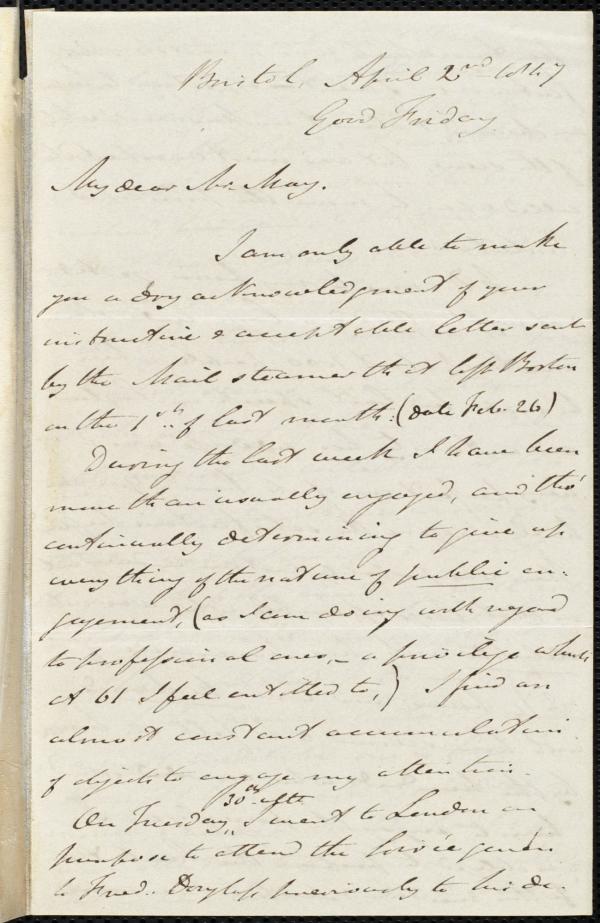 Bristol, April 2nd 1847
Good Friday
My dear Mr. May.
I am only able to make
you a dry acknowledgment of your
instructive & acceptable letter sent
by the Mail steamer that left Boston
on the 1st. of last month: (date Feb. 26)
During the last week I have been
more than usually engaged, and tho'
continually determining to give up
everything of the nature of public en-
gagement, (as I am doing with regard
to professional ones, - a privilege which
at 61 I feel entitled to,) I find an
almost constant accumulation
of objects to engage my attention.
On Tuesday, 30th ulto. I went to London on
purpose to attend the Soirée given
to Fred. Douglass, previously to his de-